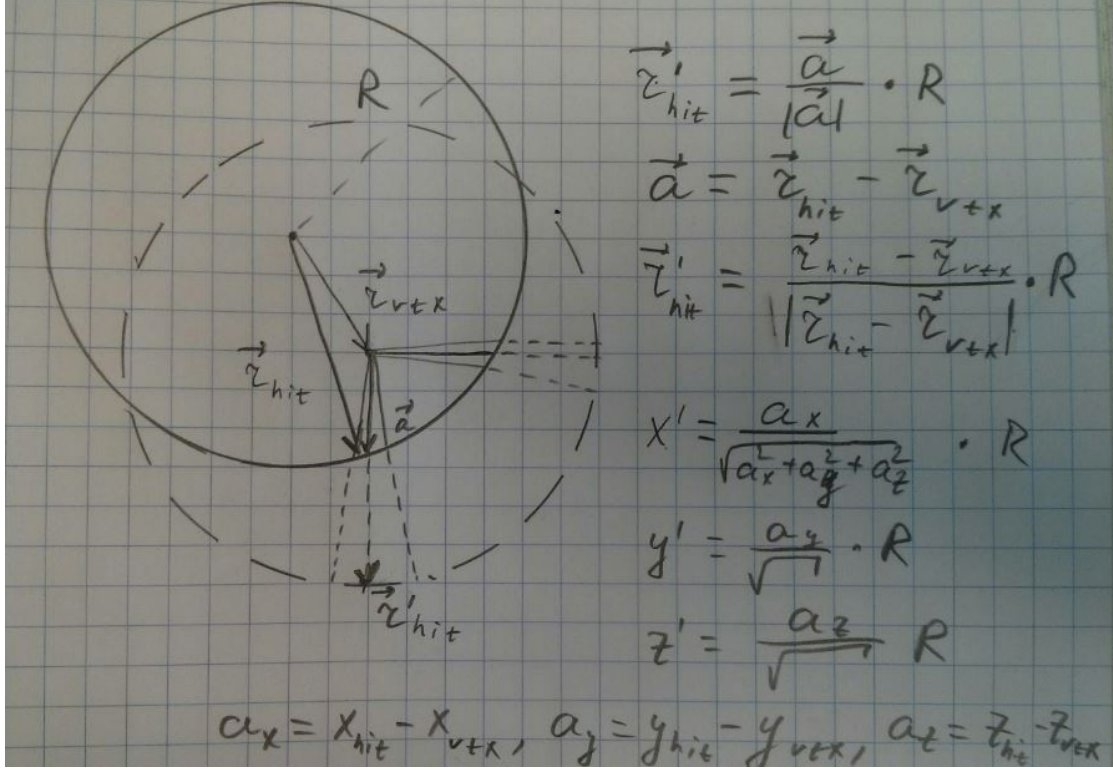 R
r⃗_vtx
r⃗_hit
a⃗
r⃗'_hit
r⃗'_hit = a⃗ / |a⃗| · R
a⃗ = r⃗_hit − r⃗_vtx
r⃗'_hit = (r⃗_hit − r⃗_vtx) / |r⃗_hit − r⃗_vtx| · R
x' = a_x / √(a_x² + a_y² + a_z²) · R
y' = a_y / √ · R
z' = a_z / √ R
a_x = x_hit − x_vtx, a_y = y_hit − y_vtx, a_z = z_hit − z_vtx